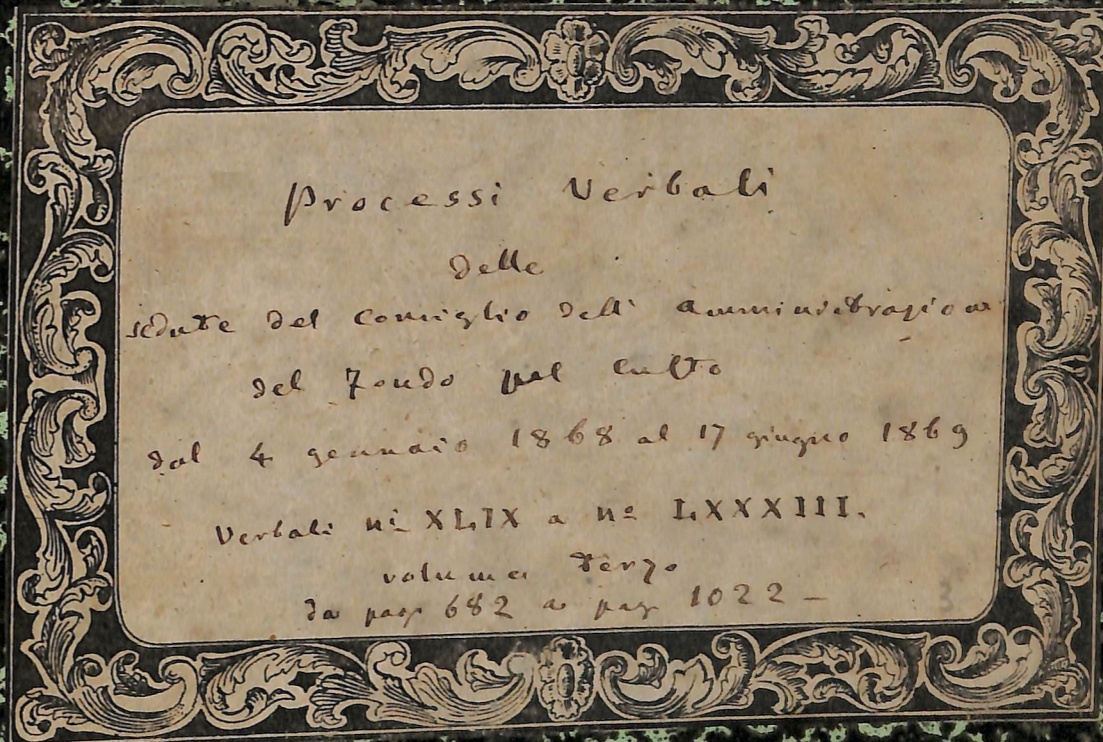 Processi Verbali
delle
sedute del Consiglio dell' Amministrazione
del Fondo pel Culto
dal 4 gennaio 1868 al 17 giugno 1869
Verbali nº XLIX a nº LXXXIII.
volume terzo
da pag. 682 a pag. 1022 –
3